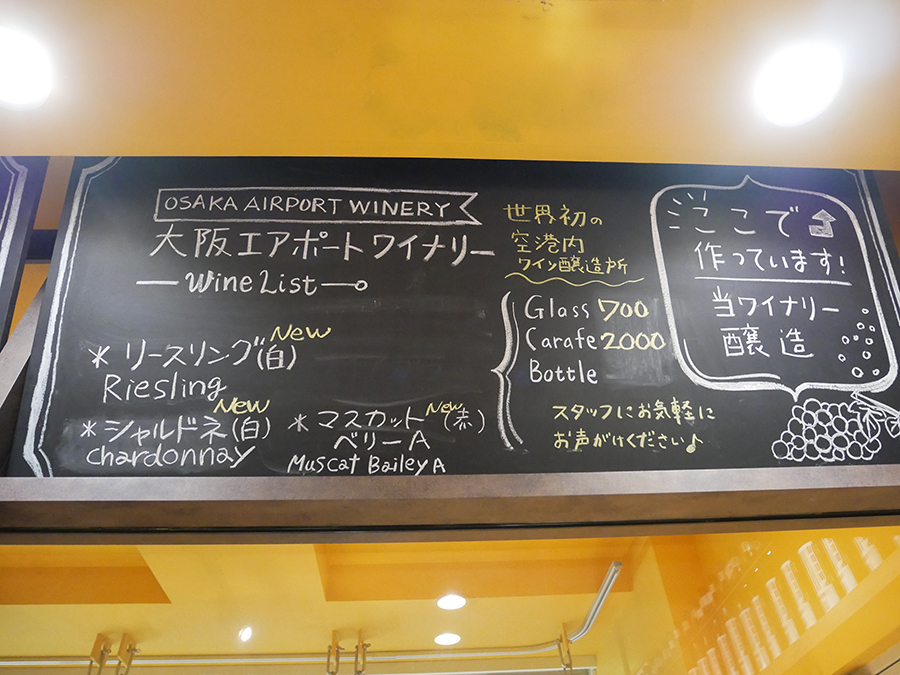 OSAKA AIRPORT WINERY
大阪エアポートワイナリー
Wine List
New
* リースリング(白)
Riesling
New
* シャルドネ(白)
chardonnay
New
* マスカット(赤)
ベリーA
Muscat Bailey A
世界初の
空港内
ワイン醸造所
Glass 700
Carafe 2000
Bottle
スタッフにお気軽に
お声がけください♪
ここで
作っています!
当ワイナリー
醸造